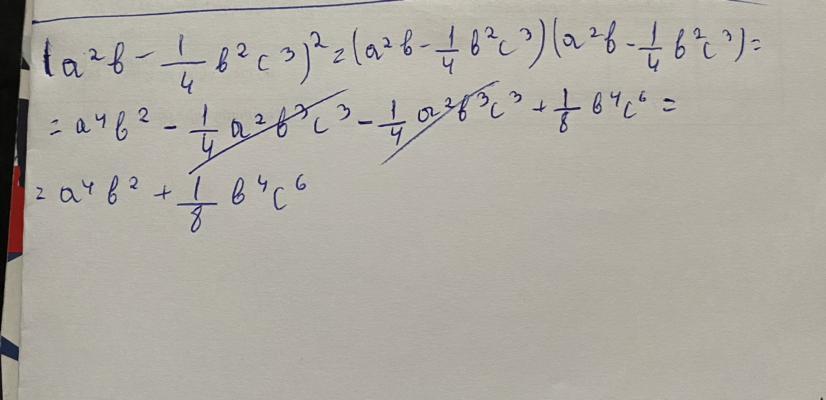 (a²b - 1/4 b²c³)² = (a²b - 1/4 b²c³)(a²b - 1/4 b²c³) =
= a⁴b² - 1/4 a²b³c³ - 1/4 a²b³c³ + 1/8 b⁴c⁶ =
= a⁴b² + 1/8 b⁴c⁶